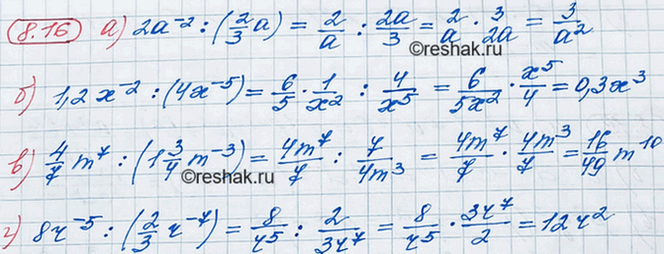 8.16 а) 2a⁻² : (2/3 a) = 2/a : 2a/3 = 2/a · 3/2a = 3/a²
©reshak.ru
б) 1,2x⁻² : (4x⁻⁵) = 6/5 · 1/x² : 4/x⁵ = 6/5x² · x⁵/4 = 0,3x³
в) 4/7 m⁷ : (1 3/4 m⁻³) = 4m⁷/7 : 7/4m³ = 4m⁷/7 · 4m³/7 = 16/49 m¹⁰
©reshak.ru
г) 8r⁻⁵ : (2/3 r⁻⁷) = 8/r⁵ : 2/3r⁷ = 8/r⁵ · 3r⁷/2 = 12r²